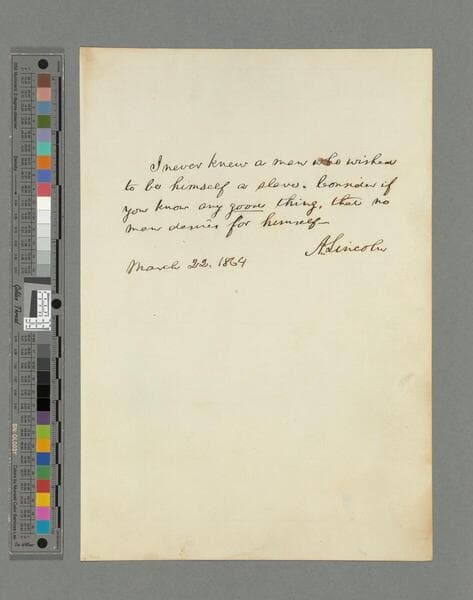 I never knew a man who wished
to be himself a slave. Consider if
you know any good thing, that no
man desires for himself
A. Lincoln
March 22, 1864
Golden Thread